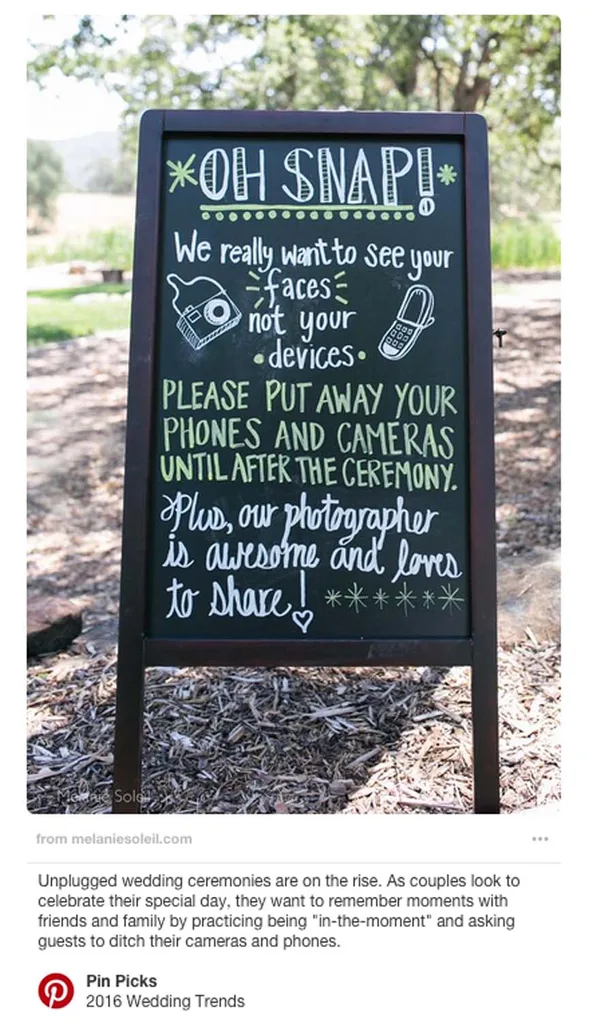 OH SNAP!
We really want to see your
faces
not your
devices
PLEASE PUT AWAY YOUR
PHONES AND CAMERAS
UNTIL AFTER THE CEREMONY.
Plus, our photographer
is awesome and loves
to share!
Melanie Soleil
from melaniesoleil.com
Unplugged wedding ceremonies are on the rise. As couples look to
celebrate their special day, they want to remember moments with
friends and family by practicing being "in-the-moment" and asking
guests to ditch their cameras and phones.
Pin Picks
2016 Wedding Trends